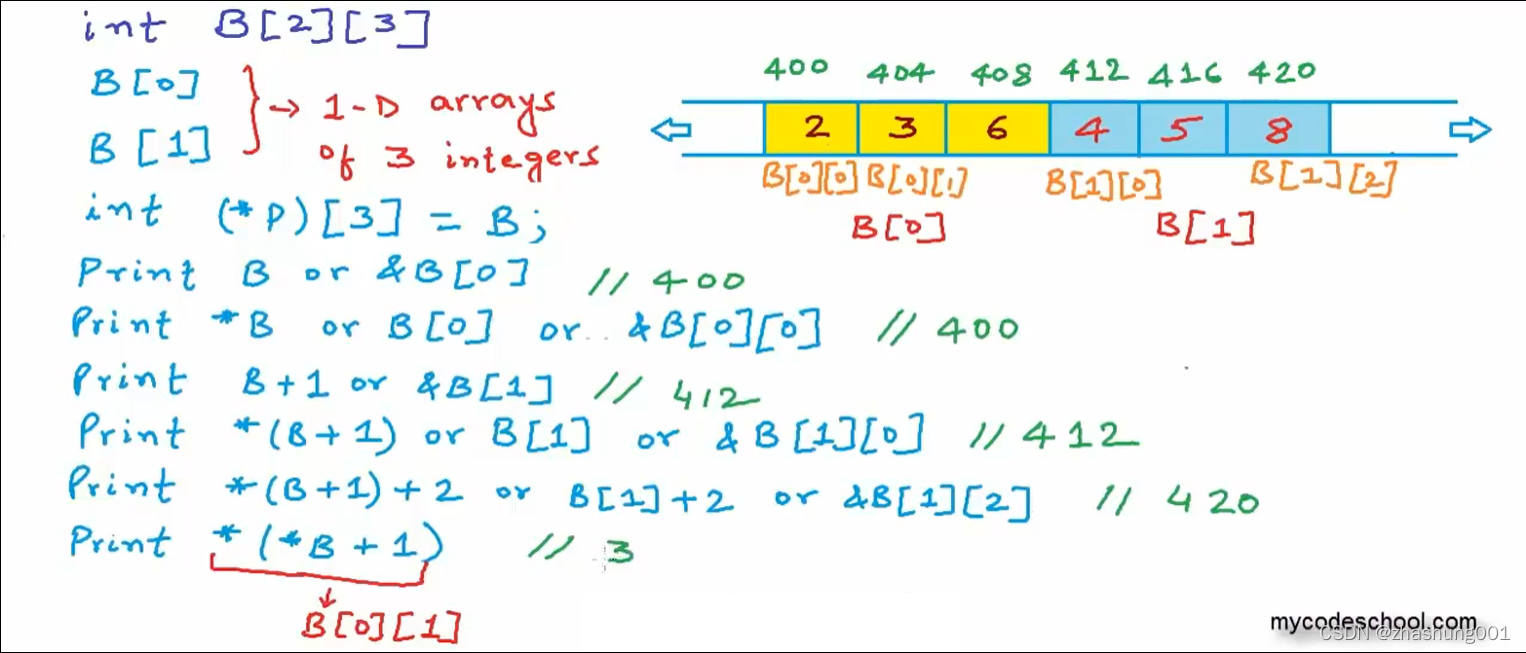 int B[2][3]
B[0]
B[1]
→ 1-D arrays
of 3 integers
int (*P)[3] = B;
Print B or &B[0] // 400
Print *B or B[0] or &B[0][0] // 400
Print B+1 or &B[1] // 412
Print *(B+1) or B[1] or &B[1][0] // 412
Print *(B+1)+2 or B[1]+2 or &B[1][2] // 420
Print *(*B+1) // 3
B[0][1]
400 404 408 412 416 420
2 3 6 4 5 8
B[0][0] B[0][1] B[1][0] B[1][2]
B[0] B[1]
mycodeschool.com
CSDN @zhashung001